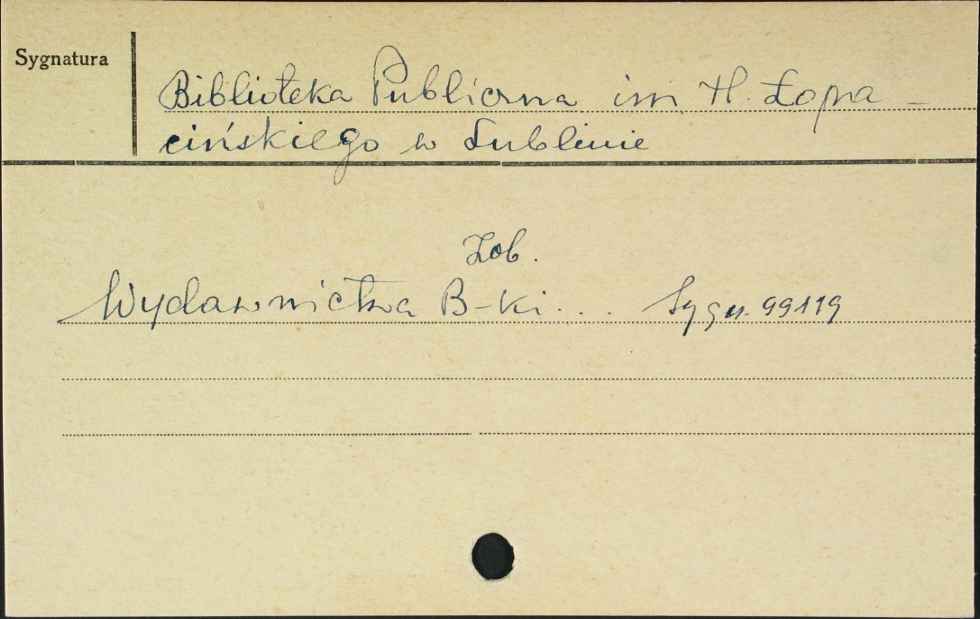 Sygnatura
Biblioteka Publiczna im H. Łopa-
cińskiego w Lublinie
Zob.
Wydawnictwa B-ki... Sygn. 99119